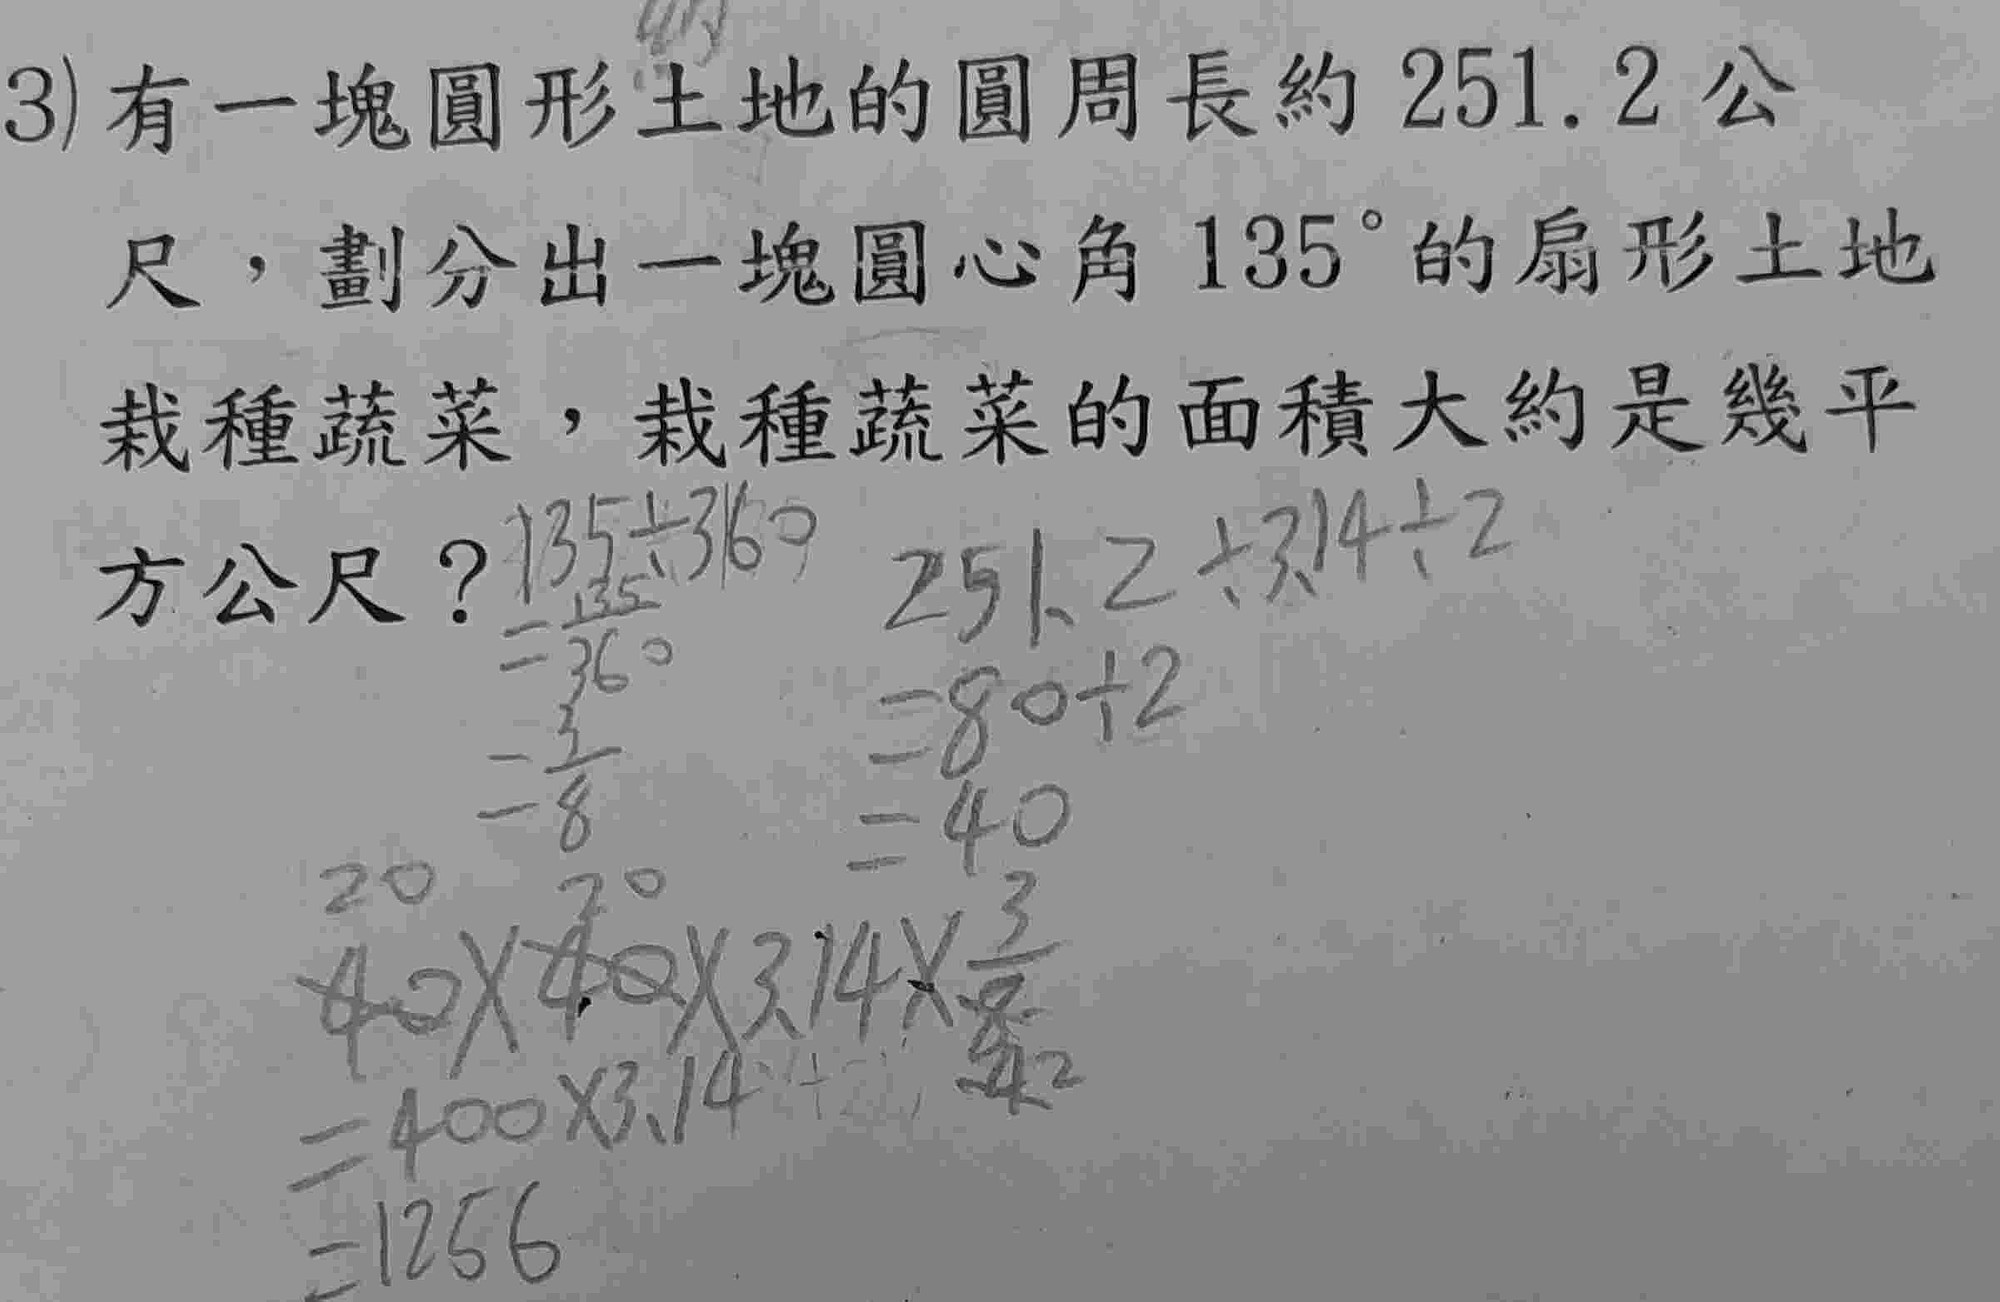 3) 有一塊圓形土地的圓周長約 251.2 公
尺，劃分出一塊圓心角 135°的扇形土地
栽種蔬菜，栽種蔬菜的面積大約是幾平
方公尺？
135÷360
=135/360
=3/8
251.2÷3.14÷2
=80÷2
=40
20 20
40×40×3.14×3/8
42
=400×3.14
=1256